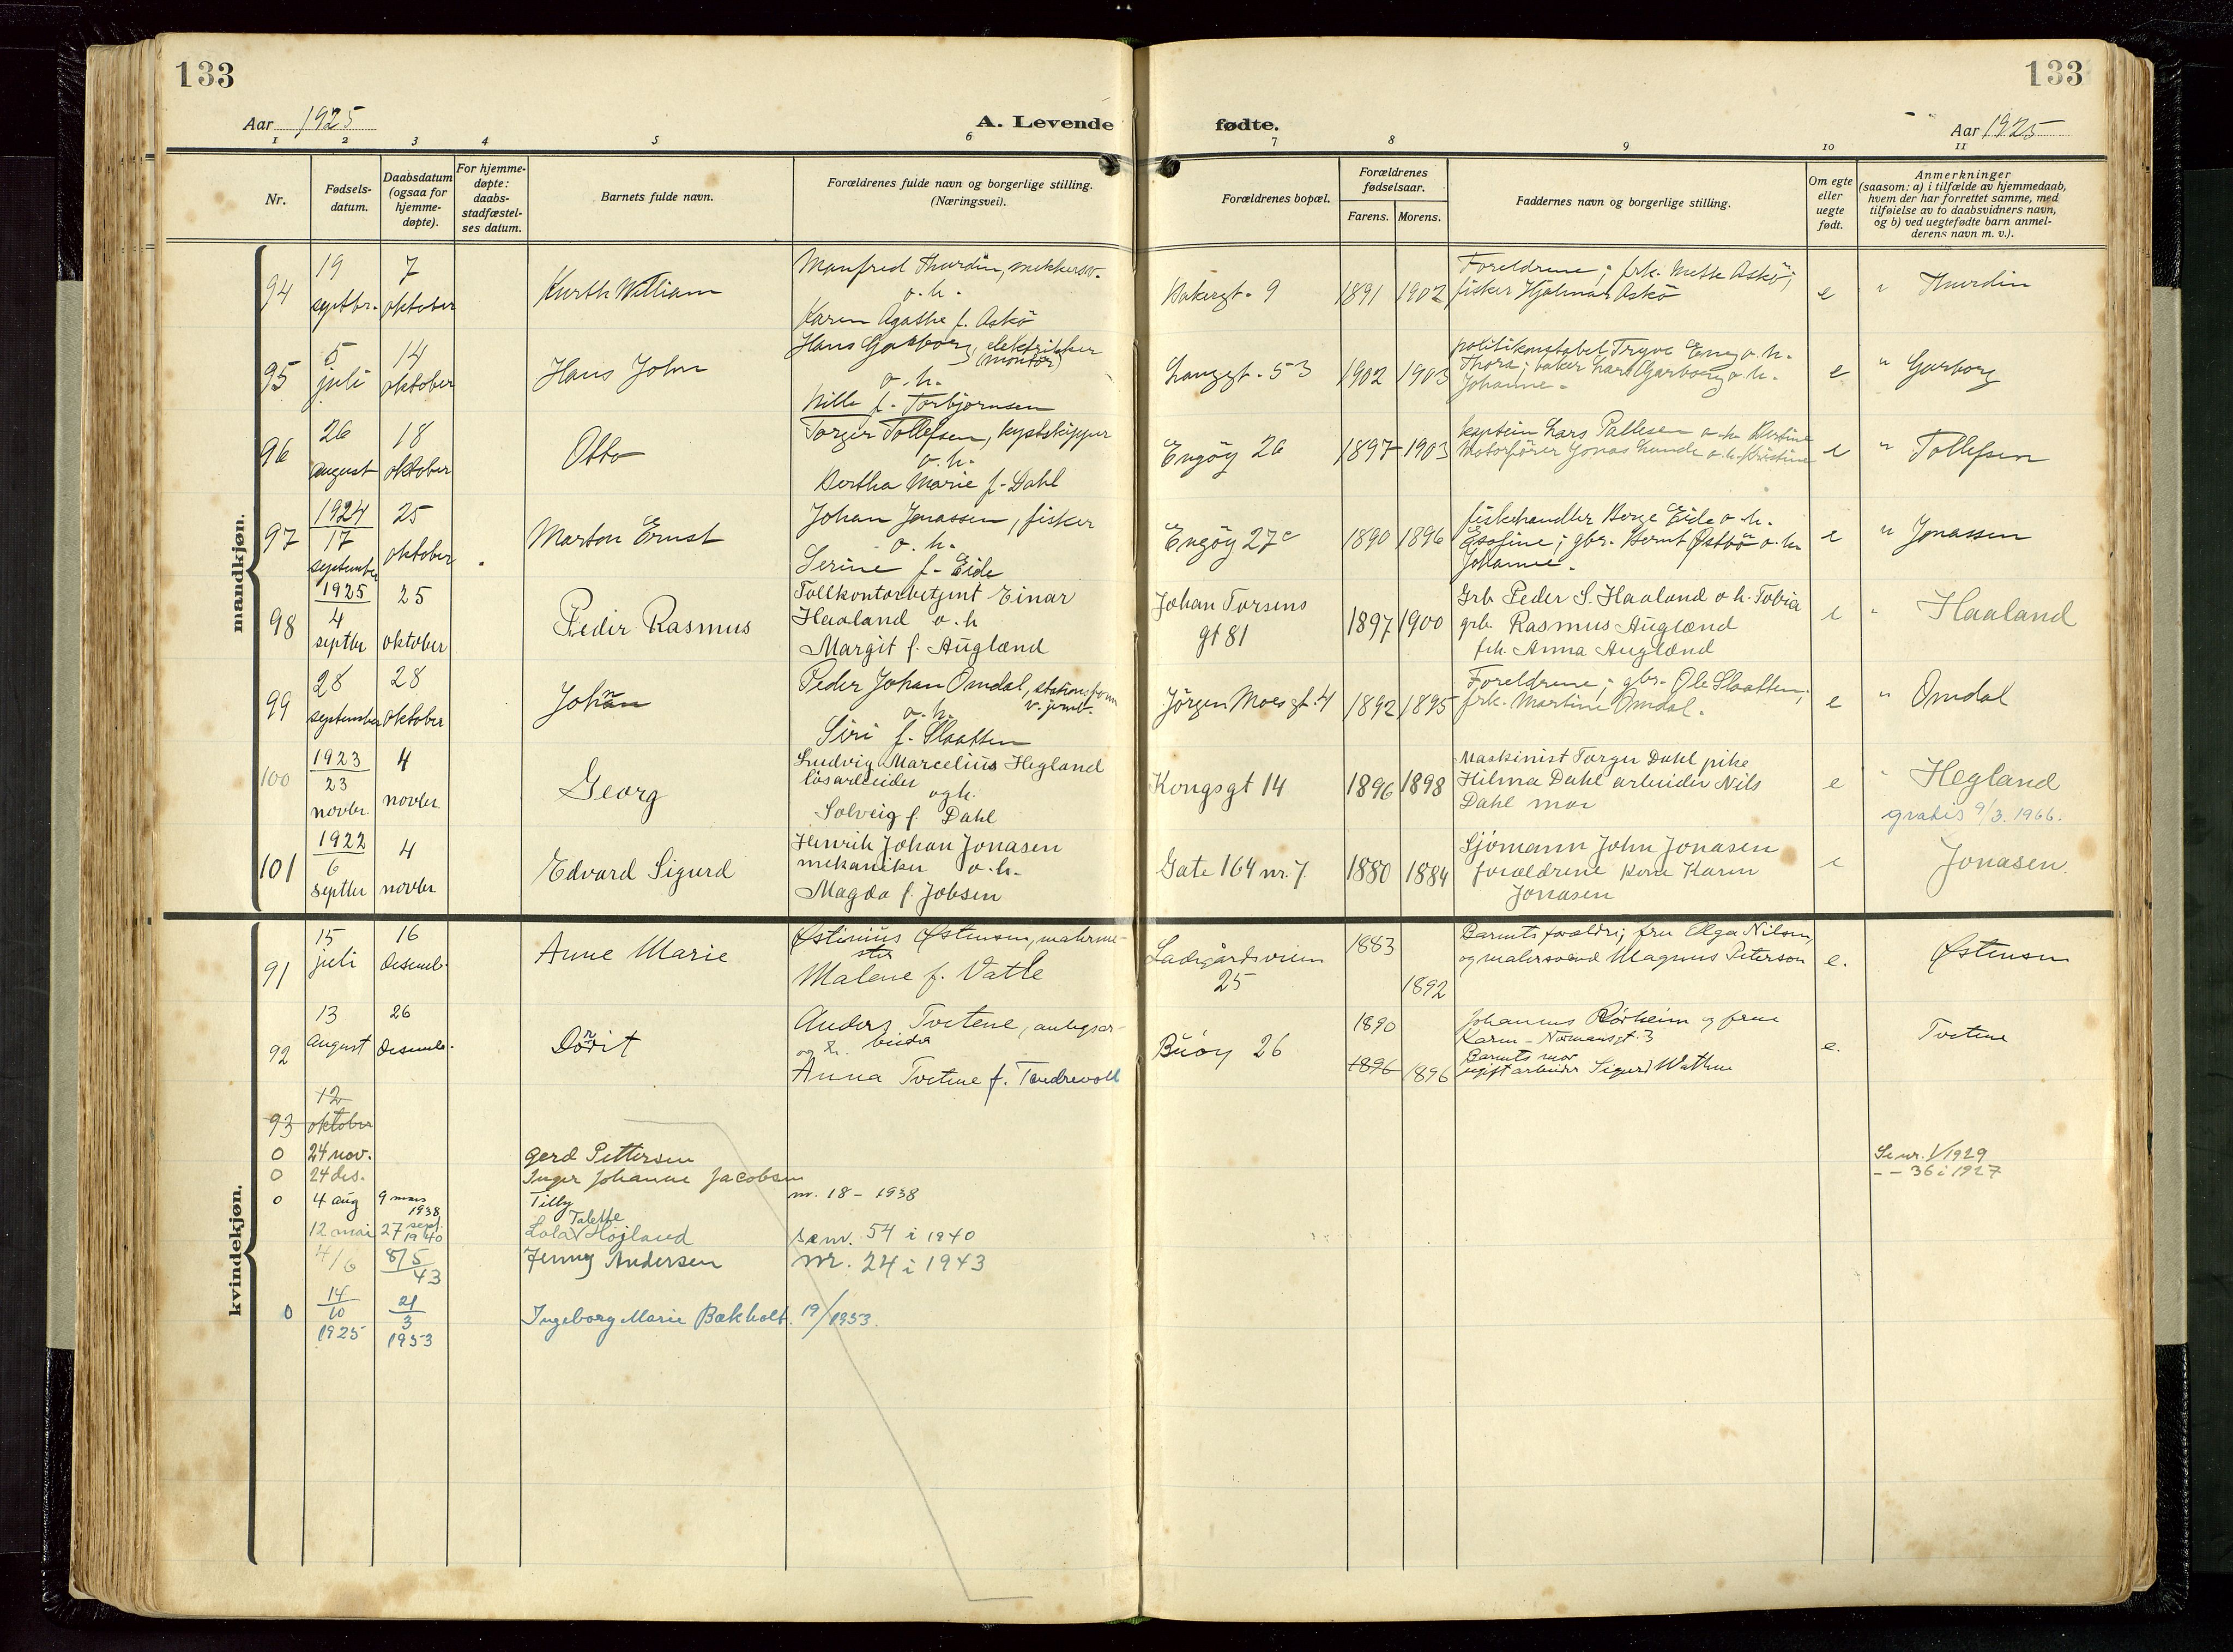 133
133
Aar 1925
A. Levende fødte.
Aar 1925
1 2 3 4 5 6 7 8 9 10 11
Nr.
Fødsels-
datum.
Daabsdatum
(ogsaa for
hjemme-
døpte).
For hjemme-
døpte:
daabs-
stadfæstel-
ses datum.
Barnets fulde navn.
Forældrenes fulde navn og borgerlige stilling.
(Næringsvei).
Forældrenes bopæl.
Forældrenes
fødselsaar.
Farens. Morens.
Faddernes navn og borgerlige stilling.
Om egte
eller
uegte
født.
Anmerkninger
(saasom: a) i tilfælde av hjemmedaab,
hvem der har forrettet samme, med
tilføielse av to daabsvidners navn,
og b) ved uegtefødte barn anmel-
derens navn m. v.).
mandkjøn.
94
19
septbr.
7
oktober
Kurth William
Manfred Thurdin,
o. h.
Karen Agathe f. Askö
Bakergt. 9
1891 1902
Foreldrene; frk. Mette Askö;
fisker Hjalmar Askö
e
" Thurdin
95
5
juli
14
oktober
Hans John
Hans Garborg, elektriker
(montör)
o. h.
Nille f. Torbjørnsen
Langgt. 53
1902 1903
politikonstabel Trygve Eng o. h.
Thora; baker Lars Garborg o. h.
Johanne.
e
" Garborg
96
26
august
18
oktober
Otto
Torger Tollefsen, kystskipper
o. h.
Bertha Marie f. Dahl
Engöy 26
1897 1903
kaptein Lars Pallesen o. h.
Motorfører Jonas Lunde o. h. Kristine
e
" Tollefsen
97
1924
17
september
25
oktober
Marton Ernst
Johan Jonassen, fisker
o. h.
Serine f. Eide
Engöy 27c
1890 1896
fiskehandler Berge Eide o. h.
Esofine; gbr. Bernt Østbö o. h.
Johanne.
e
" Jonassen
98
1925
4
septbr
25
oktober
Peder Rasmus
Tollkontorbetjent Einar
Haaland o. h
Margit f. Augland
Johan Torsens
gt 81
1897 1900
Grb Peder S. Haaland o h. Tobia
grb. Rasmus Augland
frk. Anna Augland
e
" Haaland
99
28
september
28
oktober
Johan
Peder Johan Omdal, stationsform
v. jernb.
o. h.
Siri f. Slaatten
Jörgen Moes gt. 4
1892 1895
Foreldrene; gbr. Ole Slaatten;
frk. Martine Omdal.
e
" Omdal
100
1923
23
novbr.
4
novbr
Georg
Ludvig Marcelius Hegland
løsarbeider
og h.
Solveig f. Dahl
Kongsgt 14
1896 1898
Maskinist Torger Dahl pike
Hilma Dahl arbeider Nils
Dahl mor
e
" Hegland
gratis 9/3. 1966.
101
1922
6
septbr
4
novbr
Edvard Sigurd
Henrik Johan Jonasen
mekaniker o. h.
Magda f. Jobsen
Gate 164 nr. 7.
1880 1884
Sjömann John Jonasen
forældrene kone Karen
Jonasen
e
Jonasen.
kvindekjøn.
91
15
juli
16
Desemb.
Anne Marie
Østinius Østensen, malerme-
ster
Malene f. Vatle
Ladegårdsveien
25
1883
1892
Barnets forældre; fru Olga Nilsen,
og malersvend Magnus Peterson
e.
Østensen
92
13
august
26
Desemb.
Dorrit
Anders Tvetene, anlegsar-
beider
og h.
Anna Tvetene f. Tendrevoll
Buöy 26
1890
1896 1896
Johannes Rörheim og frue
Karen - Normansgt. 3
Barnets mor
ugift arbeider Sigurd Wathne
e.
Tvetene
93
12
oktober
0 24 nov. Gerd Pettersen
Se nr. 1/1929
0 24 des. Inger Johanne Jacobsen
- - 36 i 1927
0 4 aug 9 mars 1938 Tilly nr. 18 - 1938
12 mai 27 sept. 1940 Lola Talette Højland se nr. 54 i 1940
4/6 8/5 43 Jenny Andersen nr. 24 i 1943
0 14/10 1925 21/3 1953 Ingeborg Marie Bakholt. 19/1953.